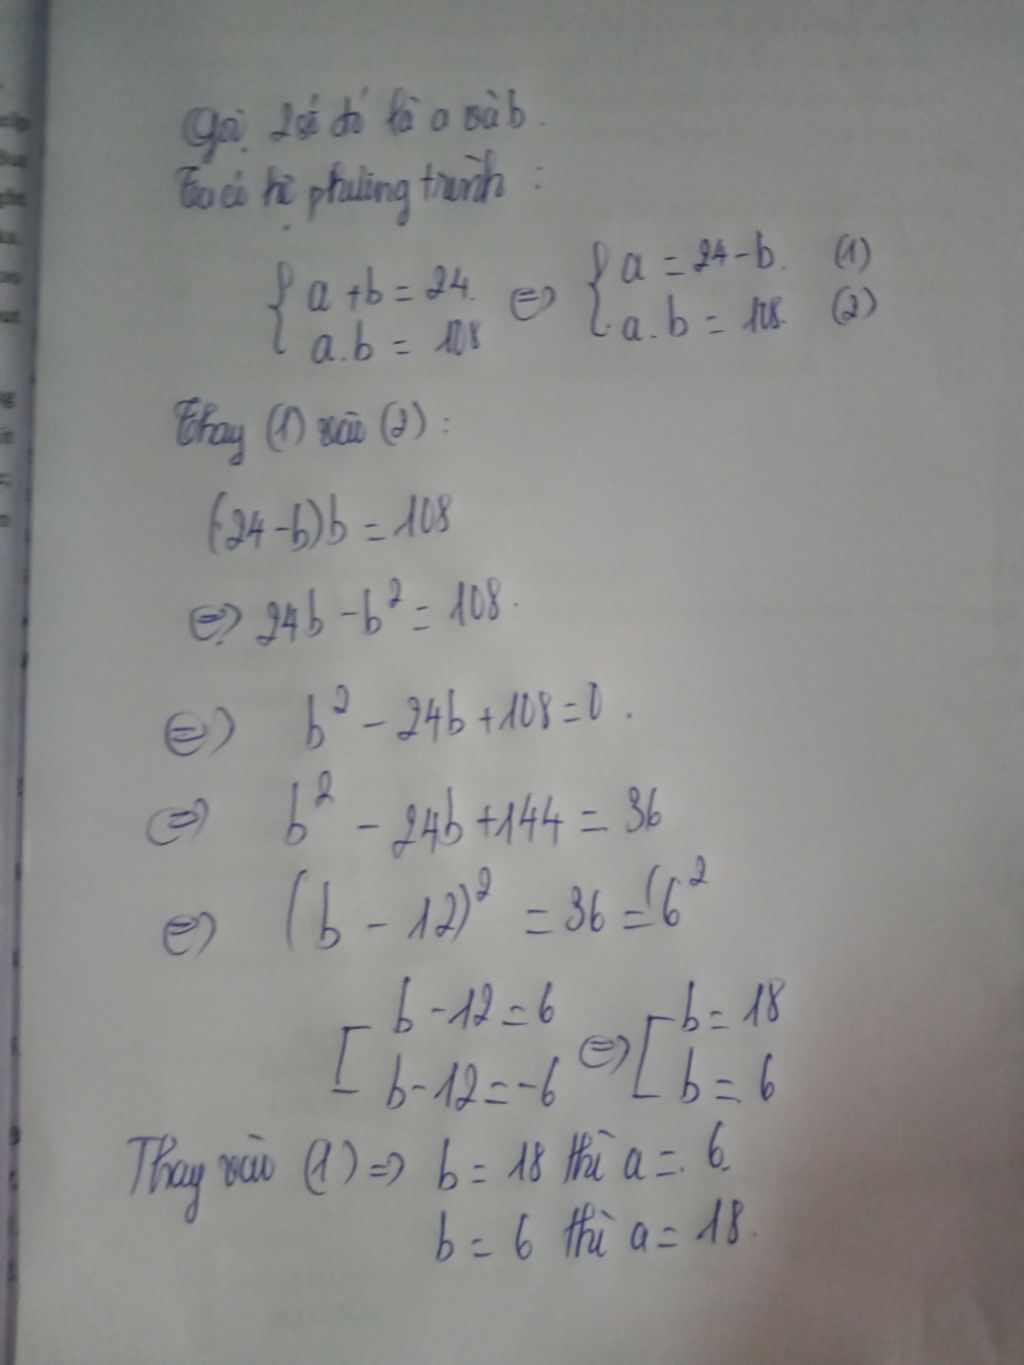 Gọi 2 số đó là a và b.
Ta có hệ phương trình :
{ a + b = 24. ⇔ { a = 24 - b. (1)
a.b = 108 a.b = 108. (2)
Thay (1) vào (2) :
(24 - b)b = 108
⇔ 24b - b² = 108.
⇔ b² - 24b + 108 = 0.
⇔ b² - 24b + 144 = 36
⇔ (b - 12)² = 36 = (6²
[ b - 12 = 6 ⇔ [ b = 18
b - 12 = -6 b = 6
Thay vào (1) ⇒ b = 18 thì a = 6.
b = 6 thì a = 18.